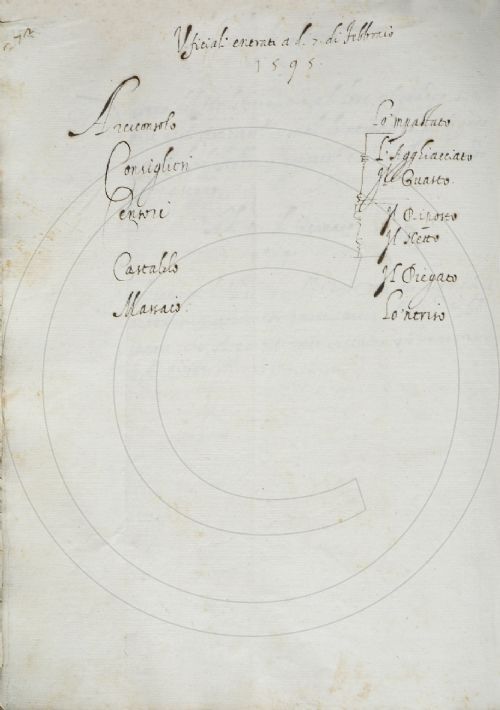 Vficiali entrati a d. 7. di febbraio
1595.
Arciconsolo Lo'mpastato
Consiglieri L'Agghiacciato
Il Guasto
Censori Il Riposto
Il Netto
Castaldo Il Piegato
Massaio Lo'ntriso